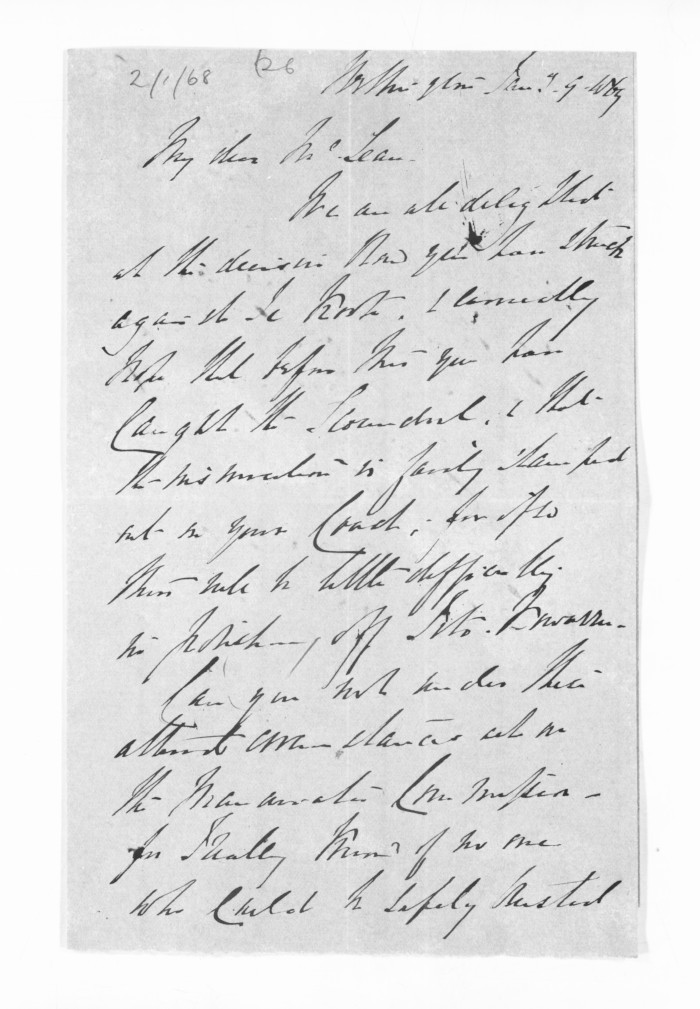 2/1/68 126
Wellington Jany. 9 1869
My dear McLean
We are all delighted
at the decisive blow you have struck
against Te Kooti. & earnestly
hope that before this you have
Caught the Scoundrel, & that
the insurrection is fairly stamped
out on your Coast; for if so
there will be little difficulty
in polishing off Tito Kowaru
Can you not under these
altered circumstances act on
the Manawatu Commission
for I really know of no one
who could be safely trusted